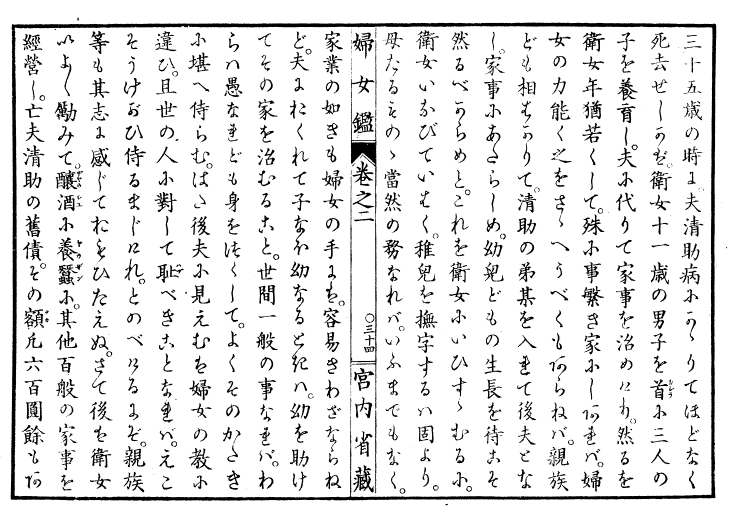 三十五歳の時に。夫清助病にかゝりてほどなく
死去せしかば。衛女十一歳の男子を首に三人の
子を養育し。夫に代りて家事を治めけり。然るを
衛女年猶若くして。殊に事繁き家にしあれば。婦
女の力能く之をさゝへうべくもあらねバ。親族
ども相はかりて。清助の弟某を入れて後夫とな
し。家事にあたらしめ。幼兒どもの生長を待こそ
然るべからめと。これを衛女にいひすゝむるに。
衛女いなびていはく。稚兒を撫字するハ固より。
母たるものゝ當然の務なれバ。いふまでもなく。
婦女鑑 巻之二 〇三十四 宮内省藏
家業の如きも婦女の手にも。容易きわざならね
ど。夫におくれて子なほ幼なるときハ。幼を助け
てその家を治むること。世間一般の事なれバ。わ
らハ愚なれども身を終くして。よくそのかたき
に堪へ侍らむ。はた後夫に見えむも婦女の教に
違ひ。且世の人に對して恥べきことなれバ。えこ
そうけがひ侍るまじけれ。とのべけるにぞ。親族
等も其志に感じておもひたえぬ。さて後も衛女
いよゝ勵みて。釀酒に養蠶に。其他百般の家事を
經營し。亡夫清助の舊債。その額凡六百圓餘もあ